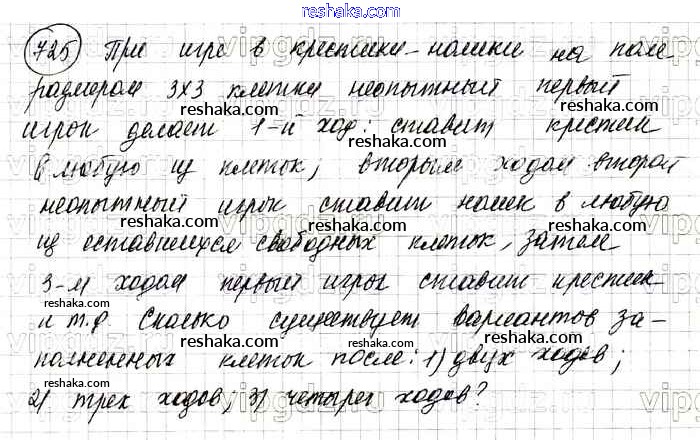 reshak.ru
725 При игре в крестики-нолики на поле
размером 3x3 клетки неопытный первый
reshaka.com reshaka.com
игрок делает 1-й ход: ставит крестик
reshaka.com
в любую из клеток; вторым ходом второй
reshaka.com reshaka.com
неопытный игрок ставит нолик в любую
reshaka.com
из оставшихся свободных клеток, затем
reshaka.com reshaka.com
3-м ходом первый игрок ставит крестик
reshaka.com reshaka.com
и т.д. Сколько существует вариантов за-
reshaka.com reshaka.com
полненных клеток после: 1) двух ходов;
reshaka.com reshaka.com
2) трех ходов; 3) четырех ходов?